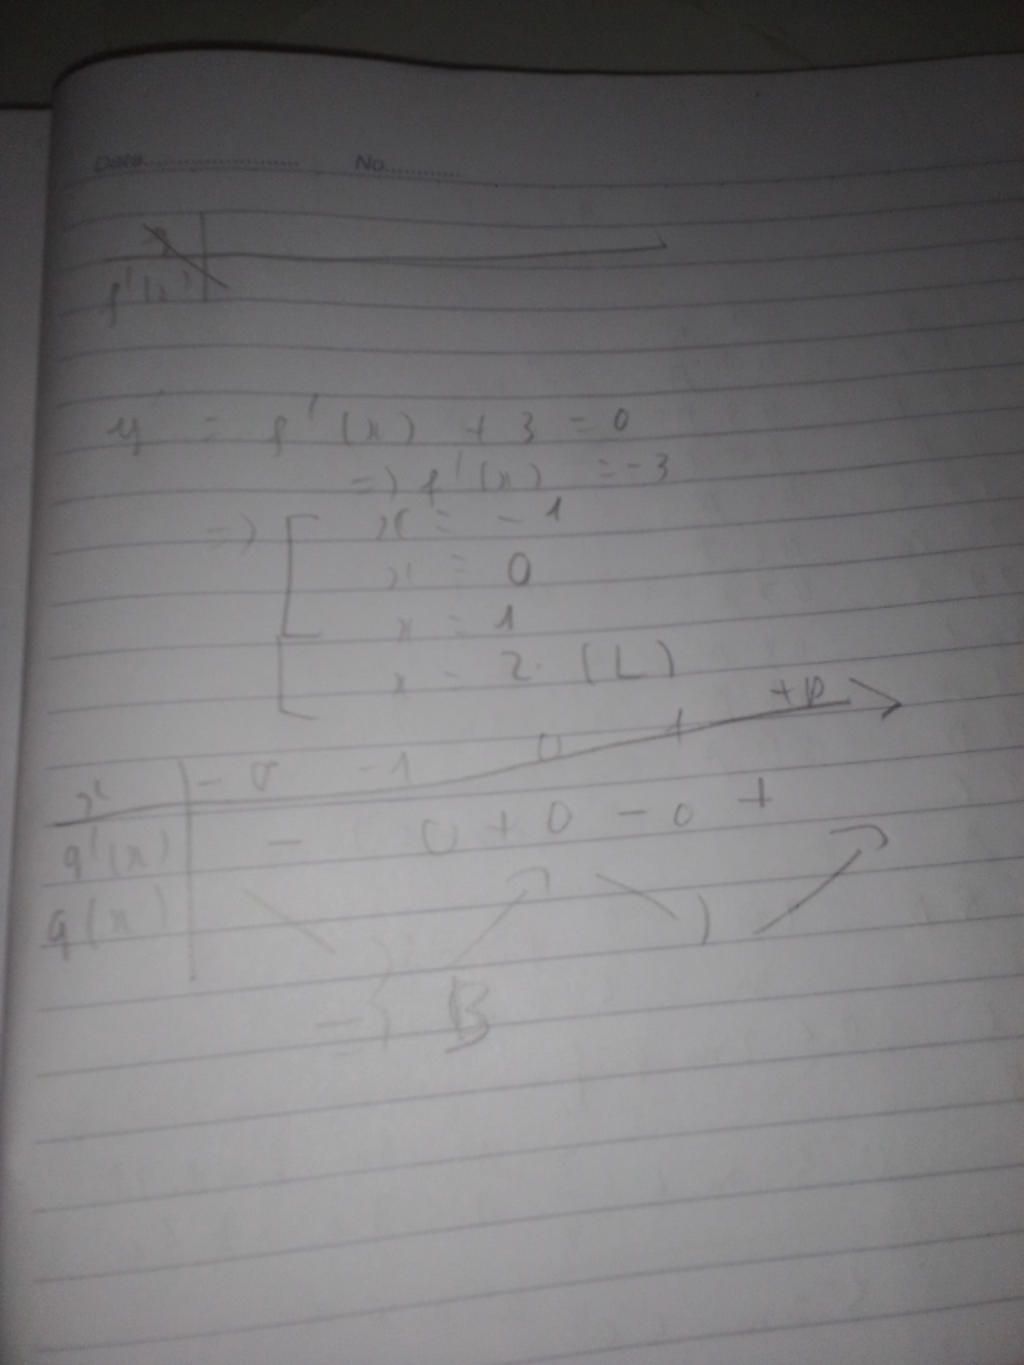 Date.................... No.............
x
f'(x)
y' = f'(x) + 3 = 0
=> f'(x) = -3
=> [ x = -1
x = 0
x = 1
x = 2. (L)
x | -∞ -1 0 1 +∞
g'(x) | - 0 + 0 - 0 +
g(x)
=> B